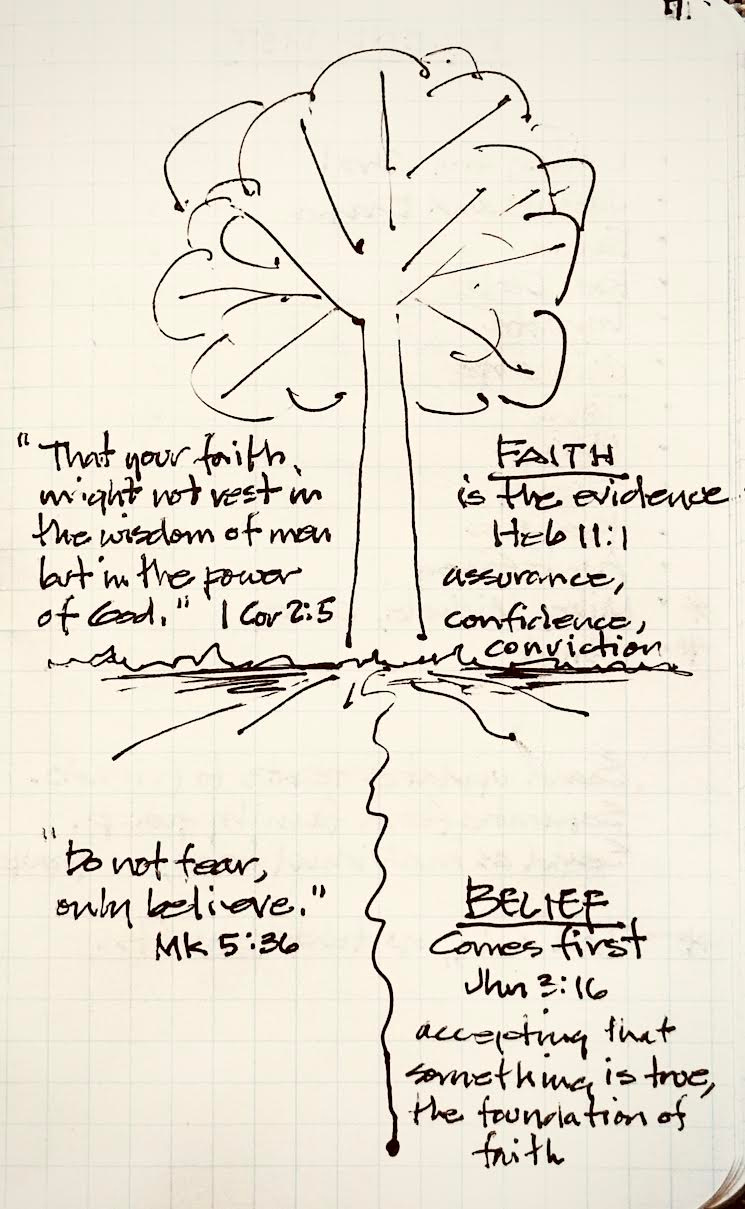 "That your faith
might not rest in
the wisdom of men
but in the power
of God." 1 Cor 2:5
FAITH
is the evidence
Heb 11:1
assurance,
confidence,
conviction
"Do not fear,
only believe."
Mk 5:36
BELIEF
Comes first
Jhn 3:16
accepting that
something is true,
the foundation of
faith